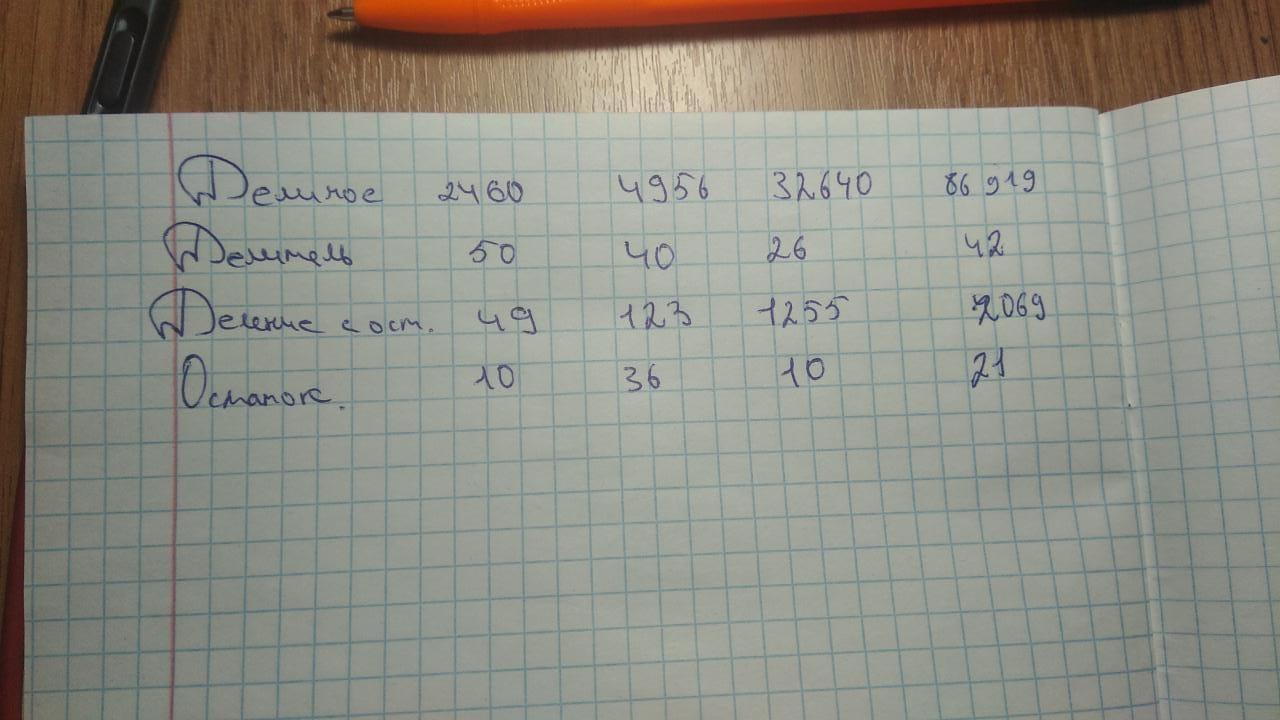 Делимое 2460 4956 32640 86919
Делитель 50 40 26 42
Деление с ост. 49 123 1255 2069
Остаток. 10 36 10 21